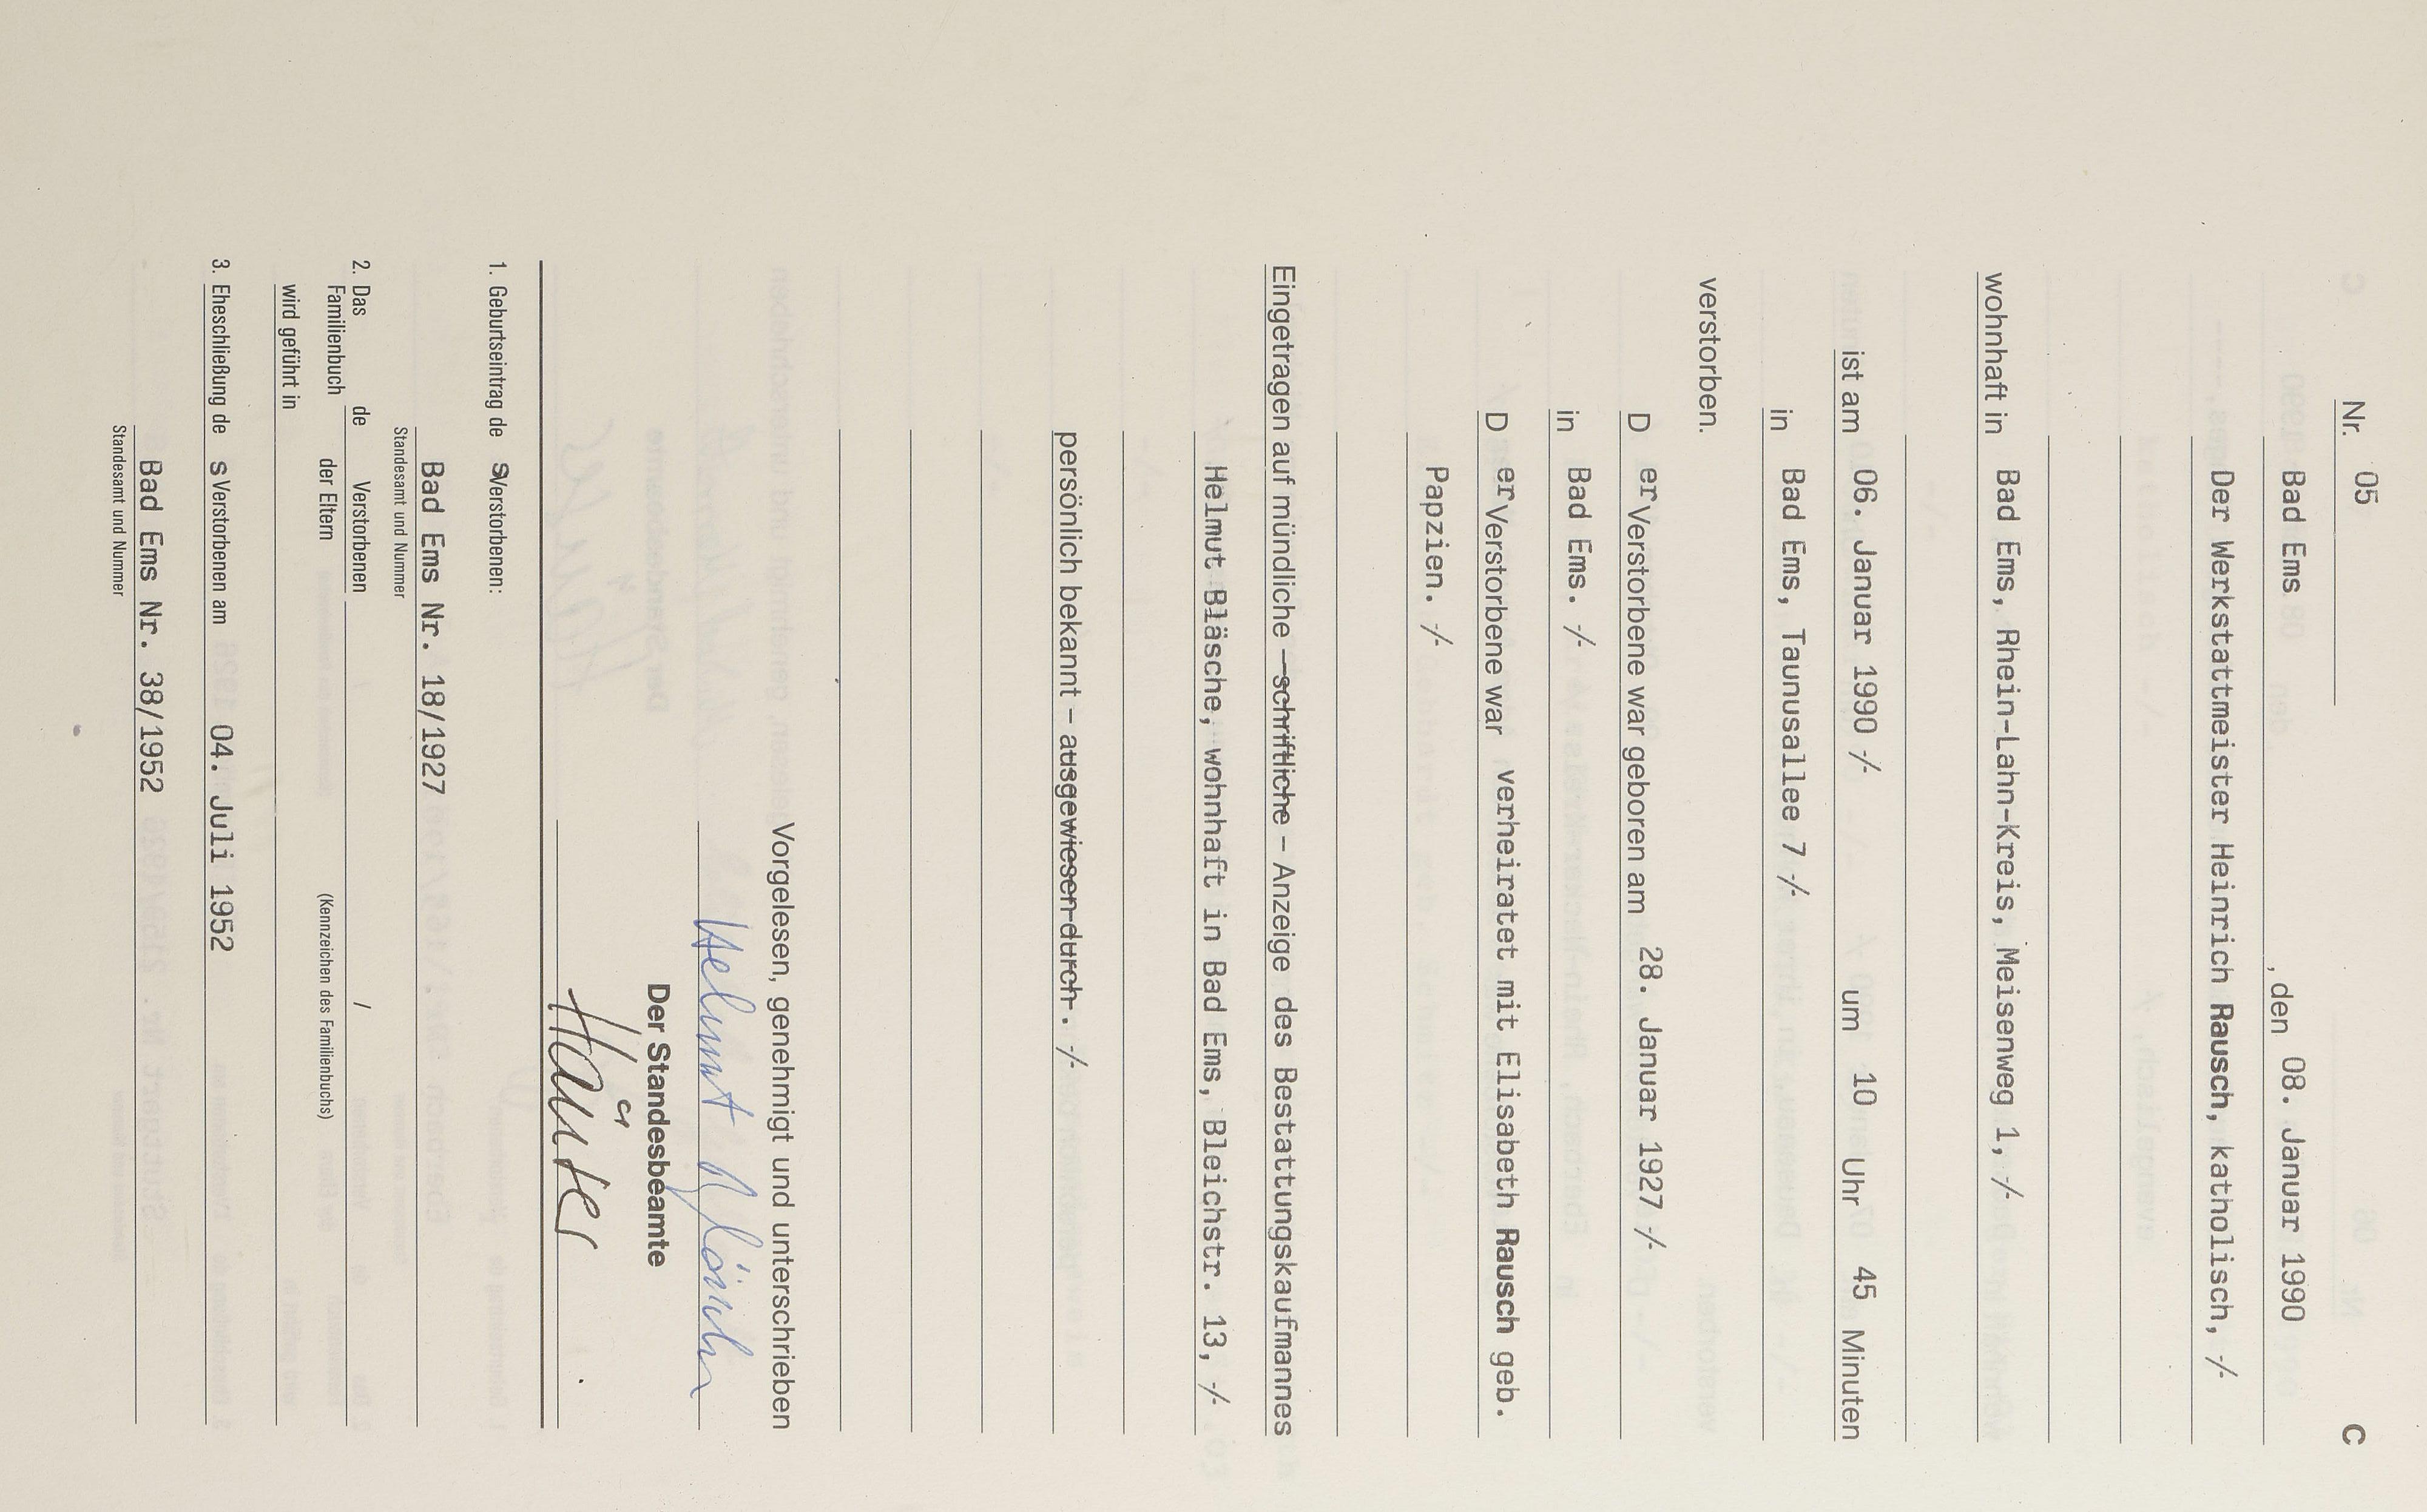 Nr. 05 C
Bad Ems , den 08. Januar 1990
Der Werkstattmeister Heinrich Rausch, katholisch, -/-
wohnhaft in Bad Ems, Rhein-Lahn-Kreis, Meisenweg 1, -/-
ist am 06. Januar 1990 -/- um 10 Uhr 45 Minuten
in Bad Ems, Taunusallee 7 -/-
verstorben.
D er Verstorbene war geboren am 28. Januar 1927 -/-
in Bad Ems. -/-
D er Verstorbene war verheiratet mit Elisabeth Rausch geb.
Papzien. -/-
Eingetragen auf mündliche – schriftliche – Anzeige des Bestattungskaufmannes
Helmut Bläsche, wohnhaft in Bad Ems, Bleichstr. 13, -/-
persönlich bekannt – ausgewiesen durch . -/-
Vorgelesen, genehmigt und unterschrieben
Helmut Bläsche
Der Standesbeamte
Häuser
1. Geburtseintrag de s Verstorbenen:
Bad Ems Nr. 18/1927
Standesamt und Nummer
2. Das de Verstorbenen /
Familienbuch der Eltern (Kennzeichen des Familienbuchs)
wird geführt in
3. Eheschließung de s Verstorbenen am 04. Juli 1952
Bad Ems Nr. 38/1952
Standesamt und Nummer